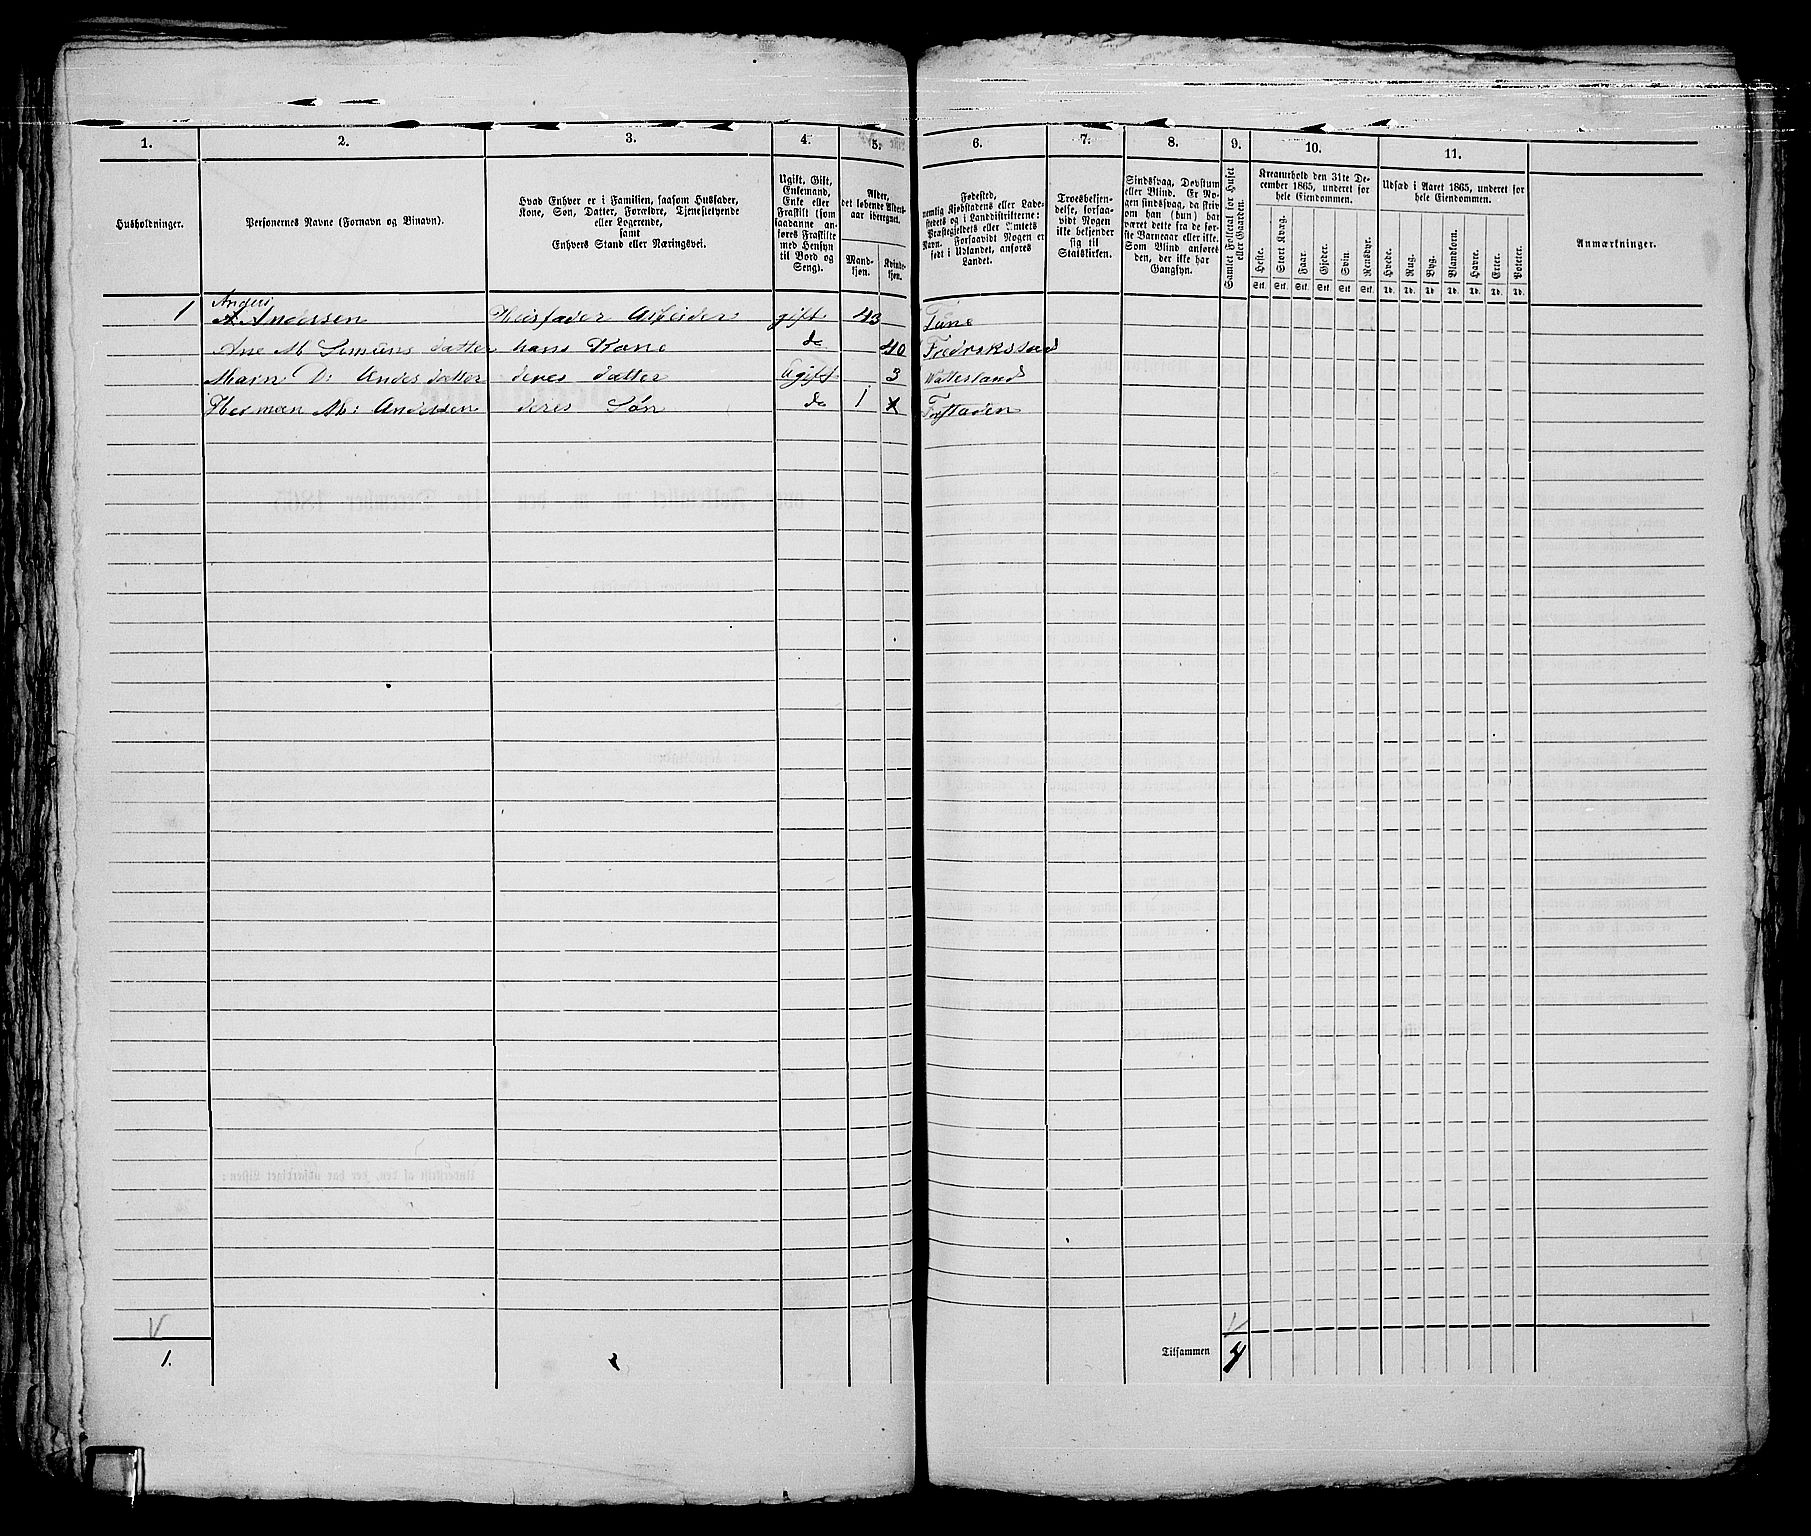 1. 2. 3. 4. 5. 6. 7. 8. 9. 10. 11.
Husholdninger.
Personernes Navne (Fornavn og Binavn).
Hvad Enhver er i Familien, saasom Husfader,
Kone, Søn, Datter, Forældre, Tjenestetyende
eller Logerende,
samt
Enhvers Stand eller Næringsvei.
Ugift, Gift,
Enkemand,
Enke eller
Fraskilt (som
saadanne an-
føres Fraskilte
med Hensyn
til Bord og
Seng).
Alder,
det løbende Alders-
aar iberegnet.
Mand-
kjøn.
Kvinde-
kjøn.
Fødested,
nemlig Kjøbstadens eller Lade-
stedets og i Landdistrikterne:
Præstegjeldets eller Sognets
Navn. Forsaavidt Nogen er
født i Udlandet, anføres
Landet.
Troesbekjen-
delse, forsaa-
vidt Nogen
ikke bekjender
sig til
Statskirken.
Sindssvag, Døvstum
eller Blind. Er No-
gen sindssvag, da skriv
om han (hun) har
været dette fra de før-
ste Barneaar eller ikke.
Som Blind anføres
den, der ikke har
Gangsyn.
Samlet Folketal for Huset
eller Gaarden.
Kreaturhold den 31te De-
cember 1865, underet for
hele Eiendommen.
Heste. Stort Kvæg. Faar. Gjeder. Svin. Rensdyr.
Stk. Stk. Stk. Stk. Stk. Stk.
Udsæd i Aaret 1865, underet for
hele Eiendommen.
Hvede. Rug. Byg. Blandkorn. Havre. Erter. Poteter.
Td. Td. Td. Td. Td. Td. Td.
Anmærkninger.
Anders
1 A. Andersen Husfader Arbeider gift 43 Tune
Ane M. datter hans Kone do 40 Fredrikstad
D: Andersdatter deres datter ugift 3
Herman M: Andersen deres Søn do 1
V V
1. Tilsammen 4